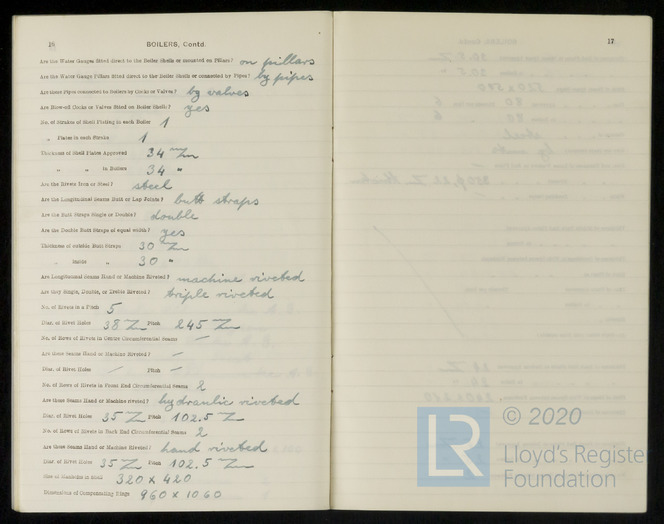 16
BOILERS, Contd.
Are the Water Gauges fitted direct to the Boiler Shells or mounted on Pillars? on pillars
Are the Water Gauge Pillars fitted direct to the Boiler Shells or connected by Pipes? by pipes
Are these Pipes connected to Boilers by Cocks or Valves? by valves
Are Blow-off Cocks or Valves fitted on Boiler Shells? yes
No. of Strakes of Shell Plating in each Boiler 1
„ Plates in each Strake 1
Thickness of Shell Plates Approved 34 mm
„ „ in Boilers 34 "
Are the Rivets Iron or Steel? steel
Are the Longitudinal Seams Butt or Lap Joints? butt straps
Are the Butt Straps Single or Double? double
Are the Double Butt Straps of equal width? yes
Thickness of outside Butt Straps 30 mm
„ inside „ 30 "
Are Longitudinal Seams Hand or Machine Riveted? machine riveted
Are they Single, Double, or Treble Riveted? triple riveted
No. of Rivets in a Pitch 5
Dia. of Rivet Holes 38 mm Pitch 245 mm
No. of Rows of Rivets in Centre Circumferential Seams —
Are these Seams Hand or Machine Riveted? —
Dia. of Rivet Holes — Pitch —
No. of Rows of Rivets in Front End Circumferential Seams 2
Are these Seams Hand or Machine riveted? hydraulic riveted
Dia. of Rivet Holes 35 mm Pitch 102.5 mm
No. of Rows of Rivets in Back End Circumferential Seams 2
Are these Seams Hand or Machine Riveted? hand riveted
Dia. of Rivet Holes 35 mm Pitch 102.5 mm
Size of Manholes in Shell 320 x 420
Dimensions of Compensating Rings 960 x 1060
17
LR © 2020
Lloyd's Register
Foundation